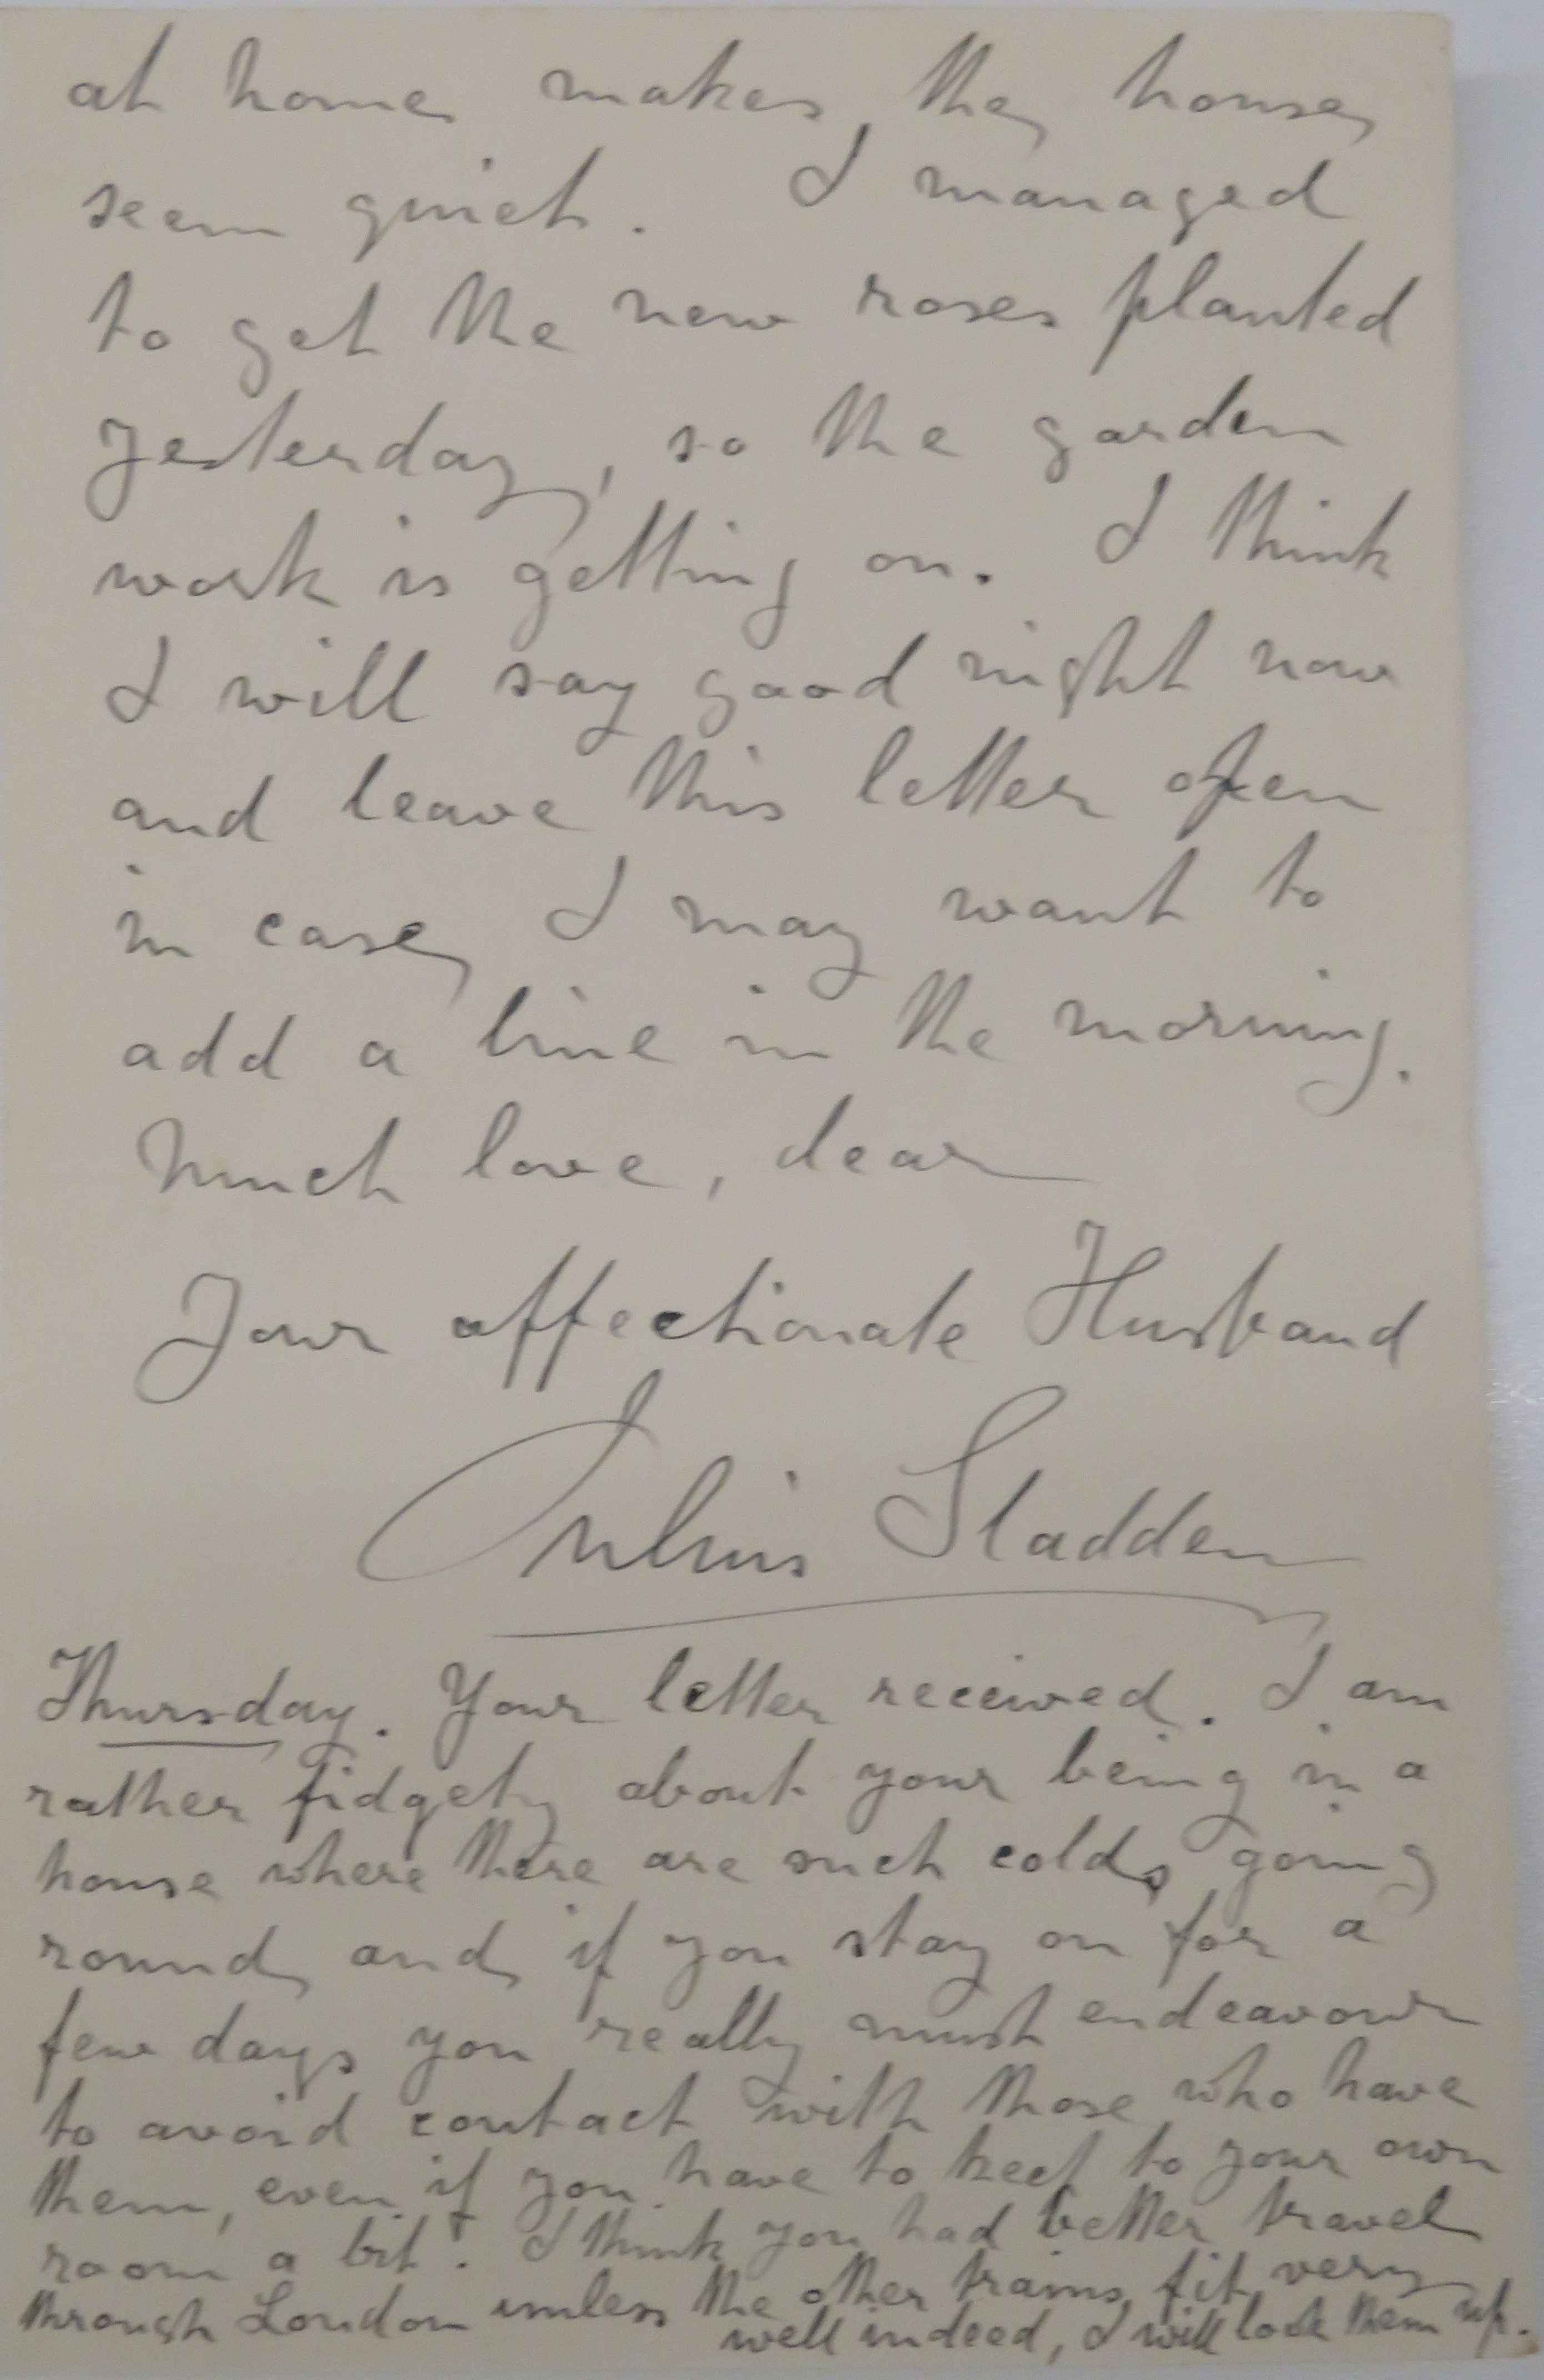 at home makes the house
seem quiet. I managed
to get the new roses planted
yesterday, so the garden
work is getting on. I think
I will say good night now
and leave this letter open
in case I may want to
add a line in the morning.
Much love, dear
Your affectionate Husband
Julius Sladden
Thursday. Your letter received. I am
rather fidgety about your being in a
house where there are such colds going
round and if you stay on for a
few days you really must endeavour
to avoid contact with those who have
them, even if you have to keep to your own
room a bit. I think you had better travel
through London unless the other trains fit very
well indeed, I will look them up.